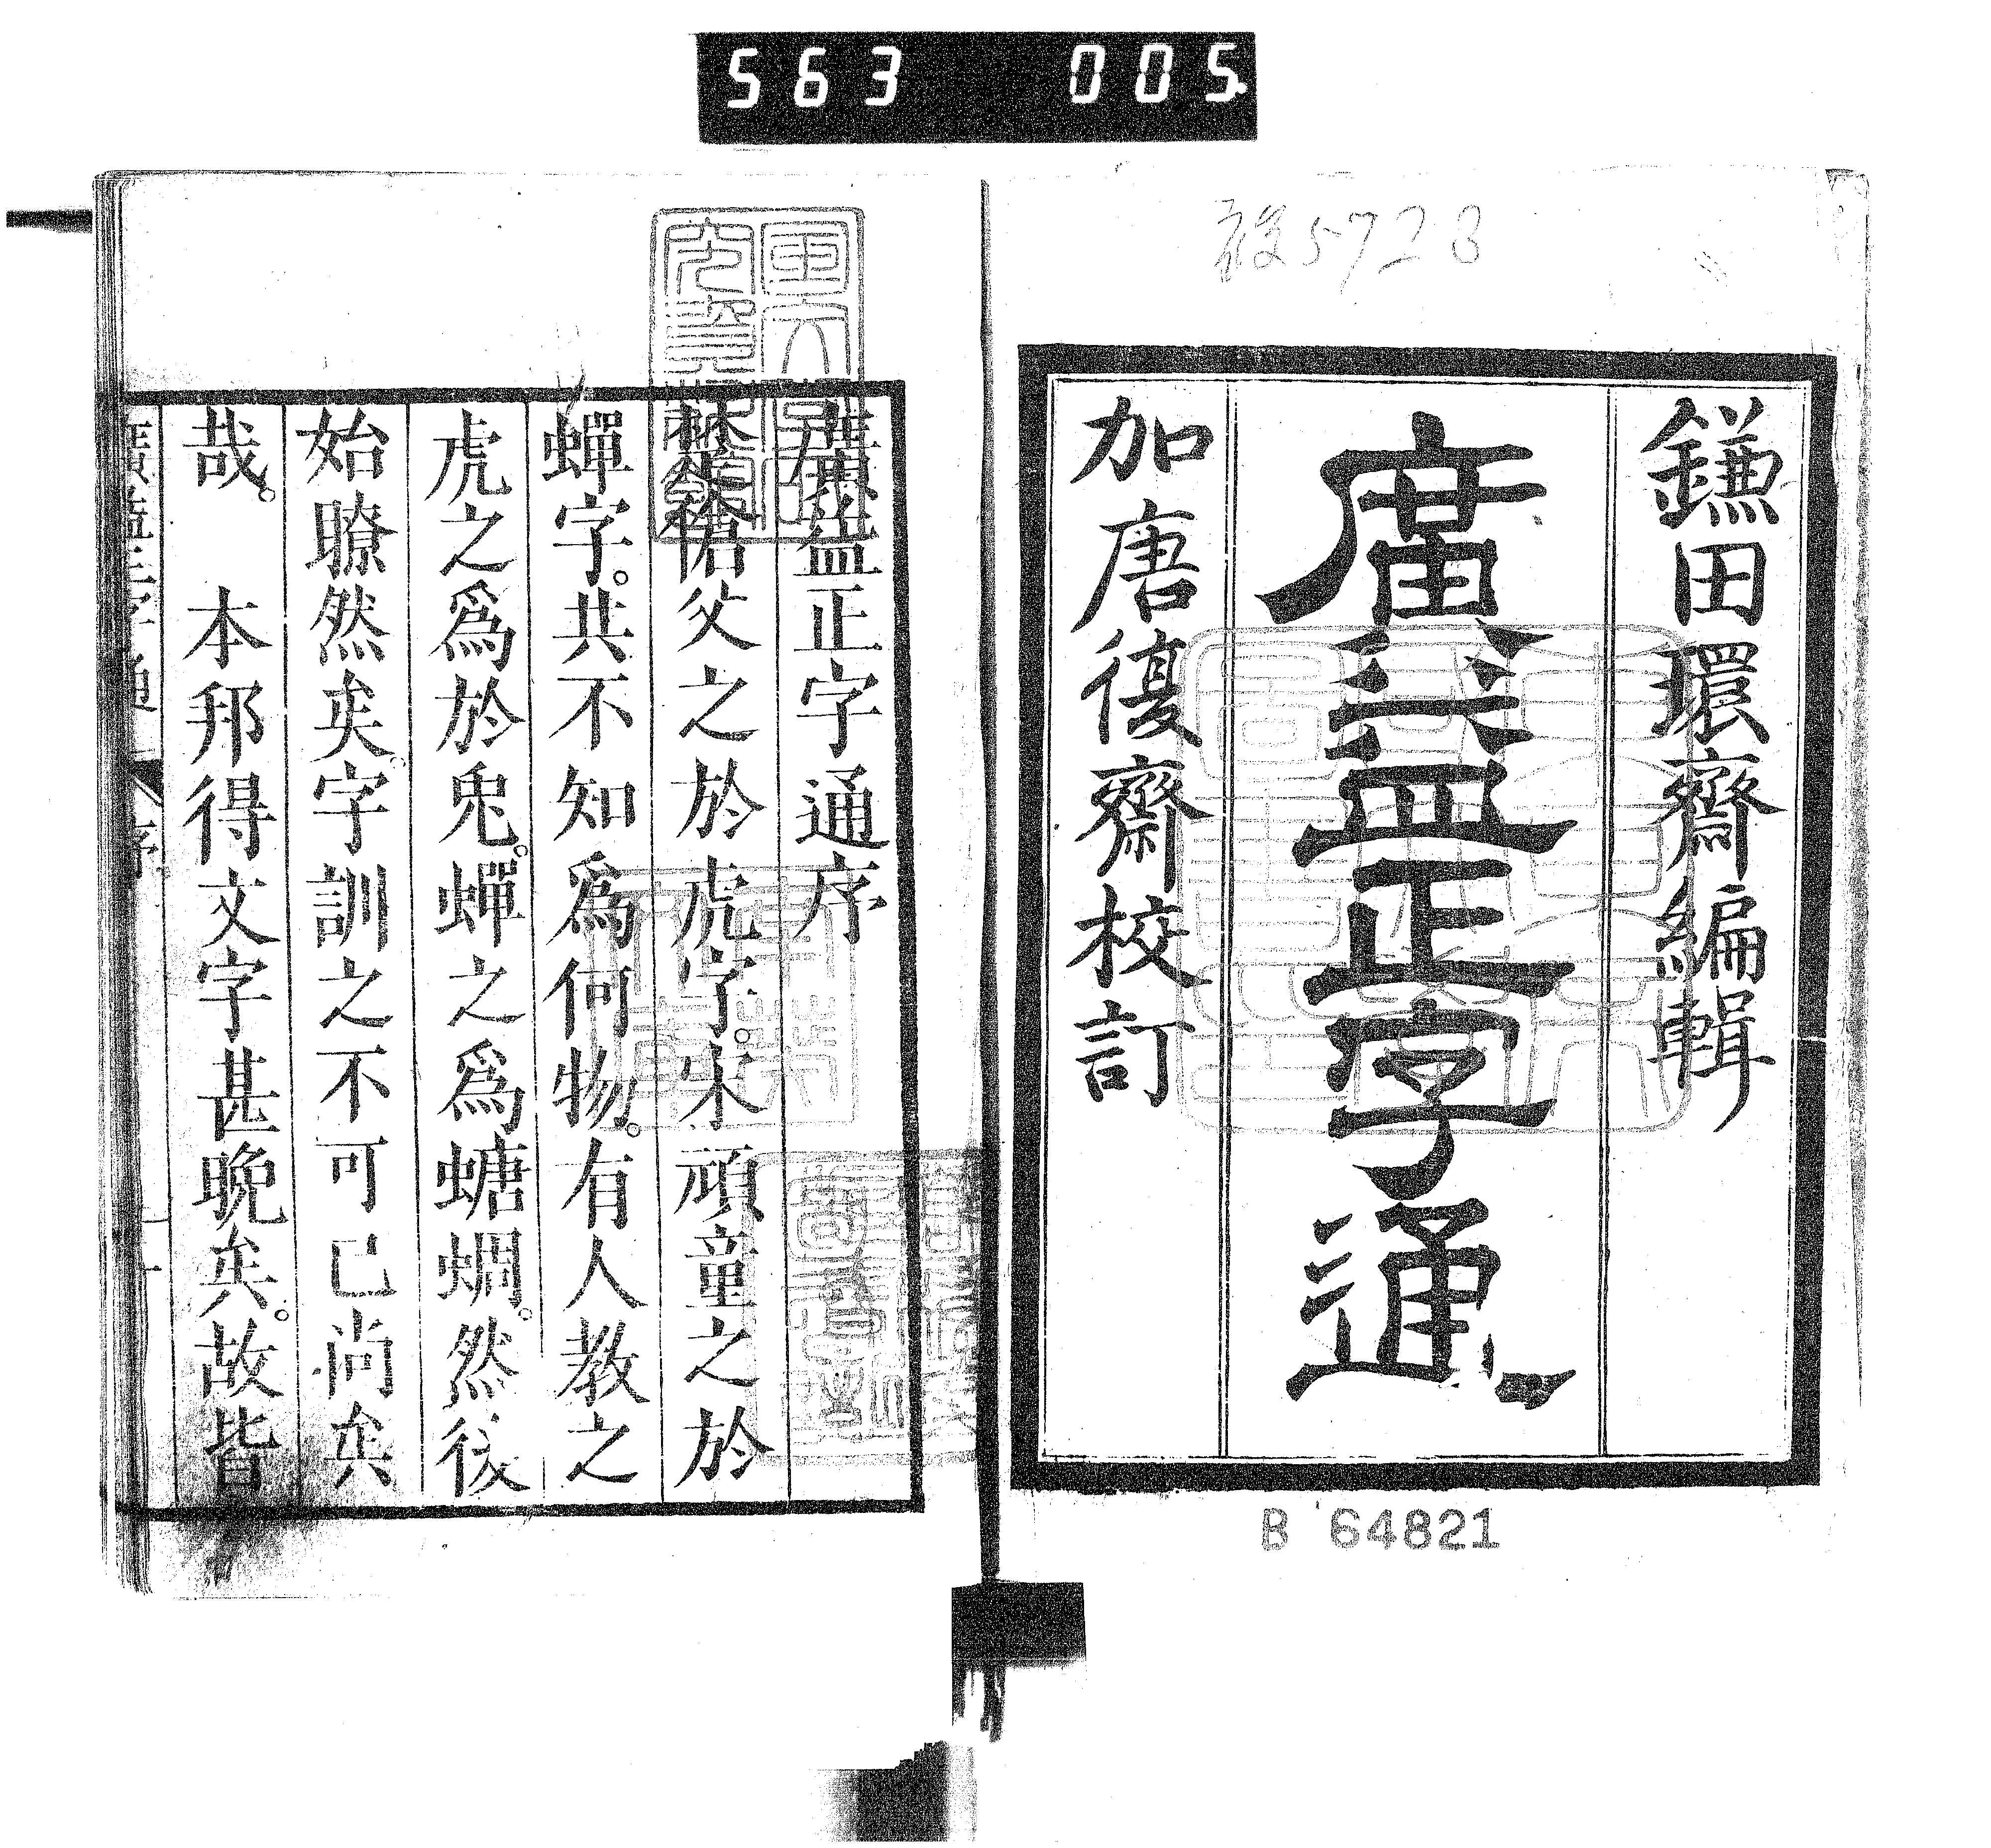 563 005
5728
鎌田環齋編輯
廣益正字通
加唐復齋校訂
B 64821
廣益正字通序
傖父之於虎字。宋頑童之於
蟬字。共不知爲何物。有人教之
虎之爲於兎。蟬之爲螗蜩。然後
始瞭然矣。字訓之不可已尚矣
哉。 本邦得文字甚晩矣。故皆
廣益正字通 序